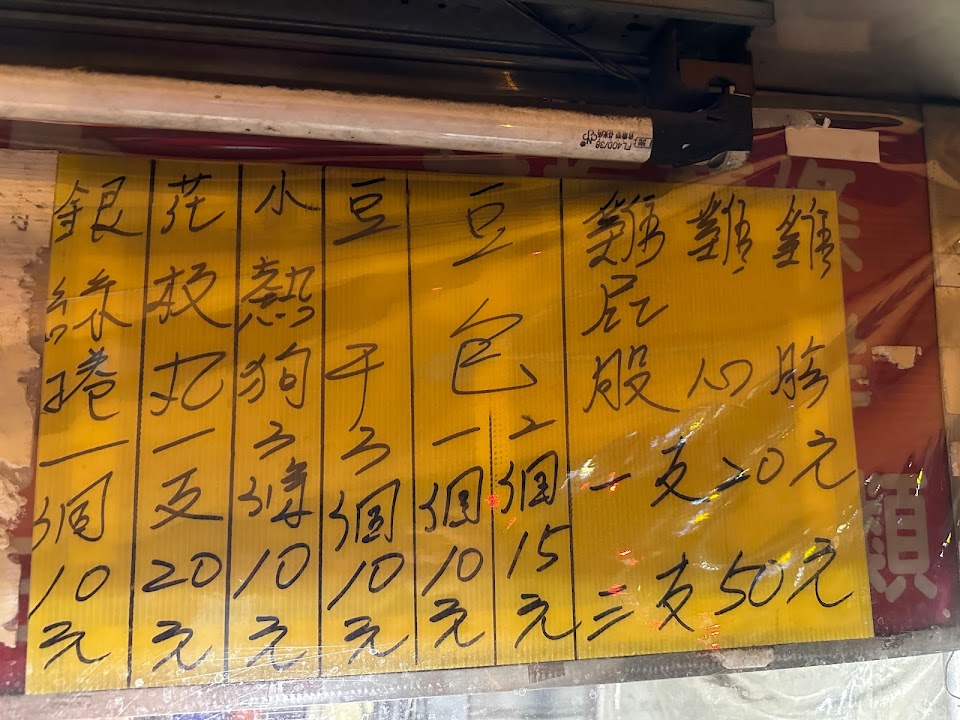 銀絲捲一個10元
花枝丸一支20元
小熱狗3條10元
豆干3個10元
豆包
一個10元
二個15元
雞屁股
雞心
雞胗
一支20元
三支50元
FL40D/38
條
類